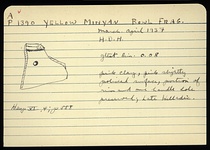 A
P 1390 YELLOW MINYAN BOWL FRAG.
march-april 1937
H.U.H.
gtest. dim. 0.08
pink clay, pink slightly
polished surface, portion of
rim and one handle hole
preserved,
Hesp. VI, 4, p. 559